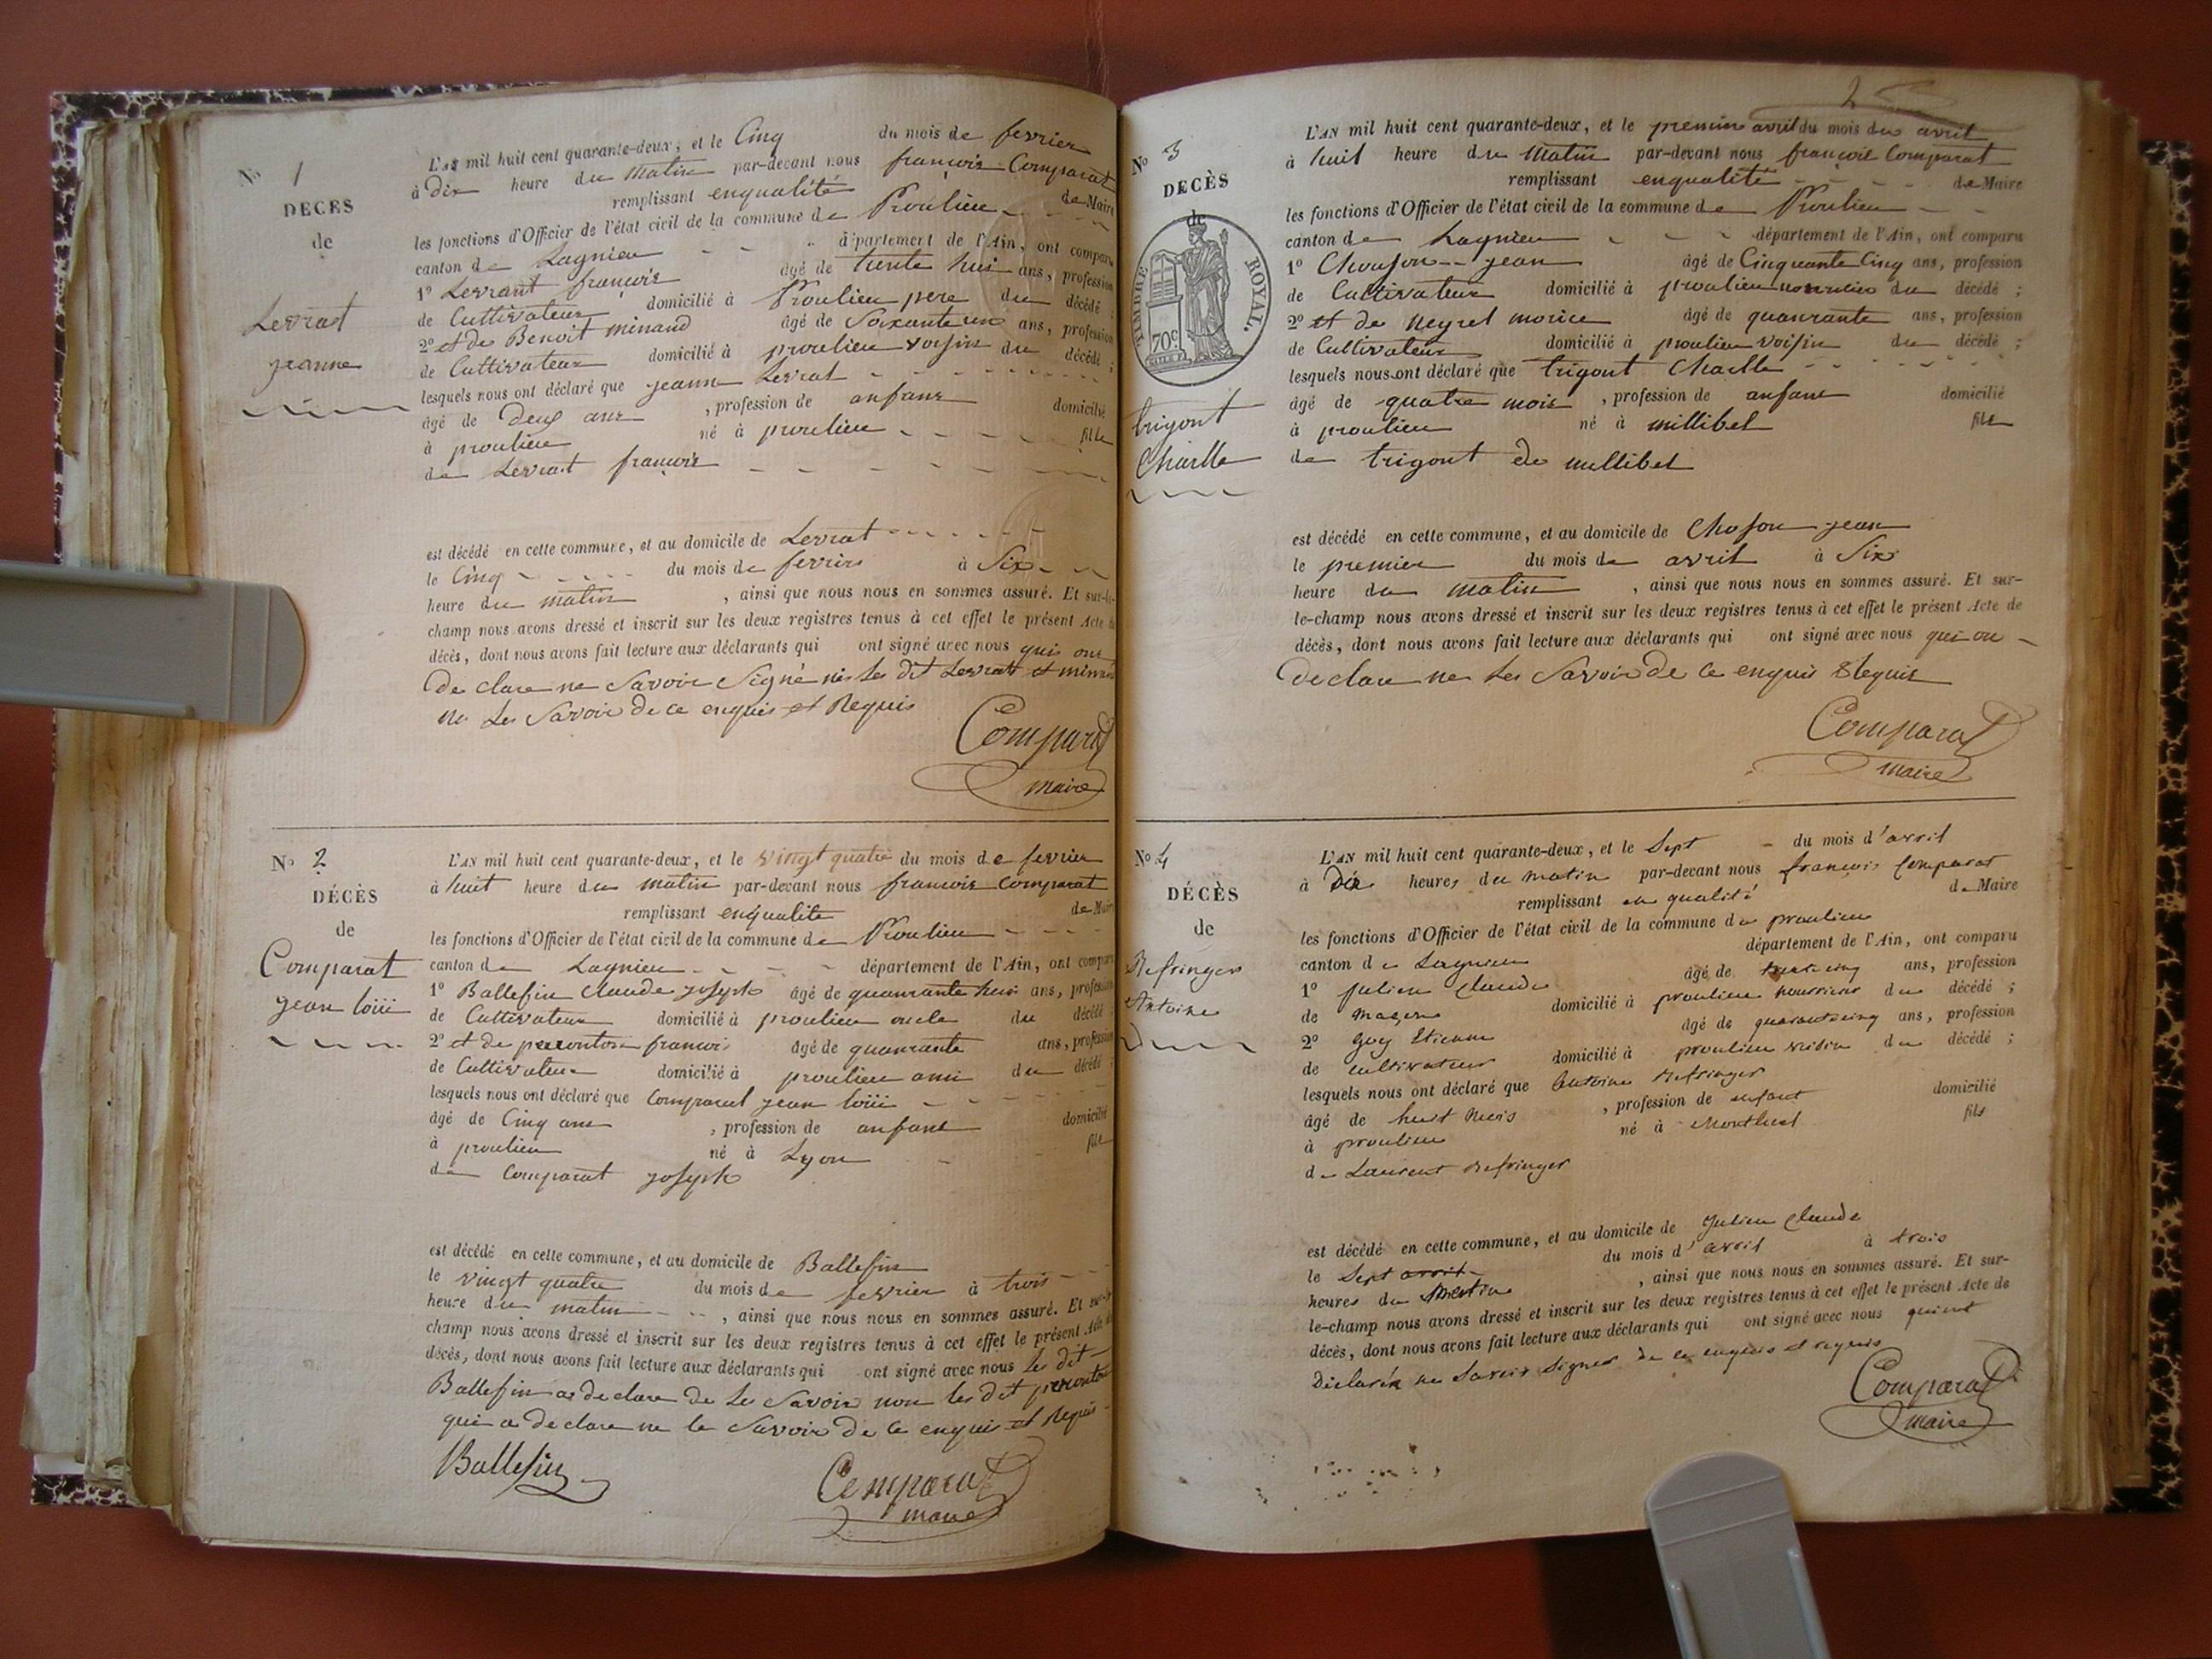 No 1
DECES
de
Levrat
jeanne
L'AN mil huit cent quarante-deux, et le Cinq du mois de fevrier
à Dix heure du Matin par-devant nous françois Comparat
remplissant enqualité de Maire
les fonctions d'Officier de l'état civil de la commune de Proulieu
canton de Lagnieu département de l'Ain, ont comparu
1º Levrant françois âgé de trente huis ans, profession
de Cultivateur domicilié à Proulieu pere du décédé ;
2º et de Benoit minand âgé de Soixante un ans, profession
de Cultivateur domicilié à proulieu voisin du décédé ;
lesquels nous ont déclaré que jeanne Levrat
âgé de Deux ans , profession de anfant domicilié
à proulieu né à proulieu fille
de Levrat françois
est décédé en cette commune, et au domicile de Levrat
le Cinq du mois de fevrier à Six
heure du matin , ainsi que nous nous en sommes assuré. Et sur-le-
champ nous avons dressé et inscrit sur les deux registres tenus à cet effet le présent Acte de
décès, dont nous avons fait lecture aux déclarants qui ont signé avec nous quis ont
De clare ne Savoir Signé nis Les dit Levrat et minand
ne Les Savoir de ce enquis et Requis
Comparat
maire
No 2
DÉCÈS
de
Comparat
jean loüi
L'AN mil huit cent quarante-deux, et le vingt quatre du mois de fevrier
à huit heure du matin par-devant nous francois Comparat
remplissant enqualite de Maire
les fonctions d'Officier de l'état civil de la commune de Proulieu
canton de Lagnieu département de l'Ain, ont comparu
1º Ballefin Claude josepht âgé de quanrante huis ans, profession
de Cultivateur domicilié à proulieu oncle du décédé ;
2º et de francois âgé de quanrante ans, profession
de Cultivateur domicilié à proulieu ami du décédé ;
lesquels nous ont déclaré que Comparat jean loüi
âgé de Cinq ans , profession de anfant domicilié
à proulieu né à Lyon fils
de Comparat josepht
est décédé en cette commune, et au domicile de Ballefin
le vingt quatre du mois de fevrier à trois
heure du matin , ainsi que nous nous en sommes assuré. Et sur-le-
champ nous avons dressé et inscrit sur les deux registres tenus à cet effet le présent Acte de
décès, dont nous avons fait lecture aux déclarants qui ont signé avec nous Les dit
Ballefin as declare de Les Savoir non les dit
qui a declare ne le Savoir de ce enquis et Requis
Ballefin
Comparat
maire
2
No 3
DECÈS
de
TIMBRE ROYAL.
70c
trigont
Charlle
L'AN mil huit cent quarante-deux, et le premier avril du mois des avril
à huit heure du Matin par-devant nous françois Comparat
remplissant enqualité de Maire
les fonctions d'Officier de l'état civil de la commune de Proulieu
canton de Lagnieu département de l'Ain, ont comparu
1º Choufon jean âgé de Cinquante Cinq ans, profession
de Cultivateur domicilié à proulieu du décédé ;
2º et de Neyret morice âgé de quanrante ans, profession
de Cultivateur domicilié à proulieu voisin du décédé ;
lesquels nous ont déclaré que trigont Charlle
âgé de quatre mois , profession de anfant domicilié
à proulieu né à millibel fils
de trigont de millibel
est décédé en cette commune, et au domicile de Chofon jean
le premier du mois de avril à Six
heure du matin , ainsi que nous nous en sommes assuré. Et sur-
le-champ nous avons dressé et inscrit sur les deux registres tenus à cet effet le présent Acte de
décès, dont nous avons fait lecture aux déclarants qui ont signé avec nous qui on
declare ne Les Savoir de ce enquis & Requis
Comparat
maire
No 4
DÉCÈS
de
Refringer
Antoine
L'AN mil huit cent quarante-deux, et le Sept du mois d'avril
à Dix heures du matin par-devant nous françois Comparat
remplissant en qualité de Maire
les fonctions d'Officier de l'état civil de la commune de proulieu
canton de Lagnieu département de l'Ain, ont comparu
1º julien claude âgé de trente cinq ans, profession
de maçon domicilié à proulieu nourricier du décédé ;
2º guy Etienne âgé de quarantecinq ans, profession
de cultivateur domicilié à proulieu voisin du décédé ;
lesquels nous ont déclaré que Antoine Refringer
âgé de huit mois , profession de enfant domicilié
à proulieu né à Montluel fils
de Laurent Refringer
est décédé en cette commune, et au domicile de Julien Claude
le Sept avril du mois d'avril à trois
heures du Matin , ainsi que nous nous en sommes assuré. Et sur-
le-champ nous avons dressé et inscrit sur les deux registres tenus à cet effet le présent Acte de
décès, dont nous avons fait lecture aux déclarants qui ont signé avec nous qui ont
Déclaré ne Savoir Signer de ce enquis et requis
Comparat
maire